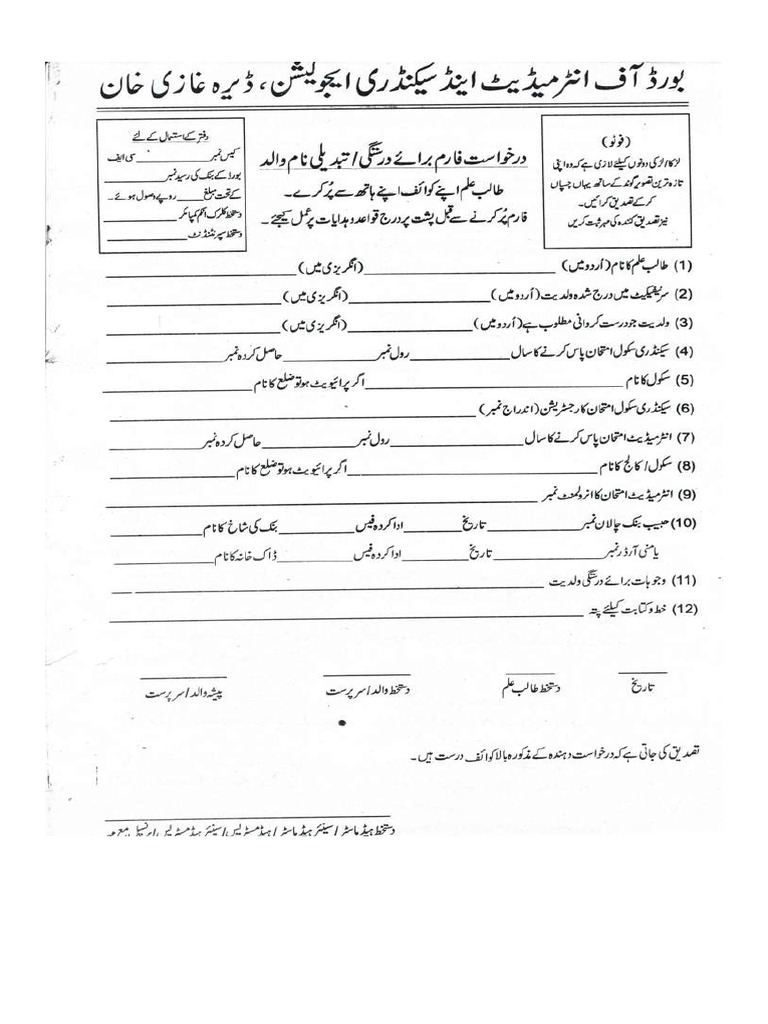 بورڈ آف انٹرمیڈیٹ اینڈ سیکنڈری ایجوکیشن، ڈیرہ غازی خان
(فوٹو)
لڑکا/لڑکی دونوں کیلئے لازمی ہے کہ وہ اپنی
تازہ ترین تصویر گوند کے ساتھ یہاں چسپاں
کر کے تصدیق کرائیں۔
نیز تصدیق کنندہ کی مہر ثبت کریں
درخواست فارم برائے درستگی / تبدیلی نام والد
طالب علم اپنے کوائف اپنے ہاتھ سے پُر کرے۔
فارم پُر کرنے سے قبل پشت پر درج قواعد و ہدایات پر عمل کیجئے۔
دفتر کے استعمال کے لئے
کیس نمبر سی ایف
بورڈ کے بنک کی رسید نمبر
کے تحت مبلغ روپے وصول ہوئے۔
دستخط کلرک انکم کمپائلر
دستخط سپرنٹنڈنٹ
(1) طالب علم کا نام (اُردو میں) (انگریزی میں)
(2) سرٹیفکیٹ میں درج شدہ ولدیت (اُردو میں) (انگریزی میں)
(3) ولدیت جو درست کروانی مطلوب ہے (اُردو میں) (انگریزی میں)
(4) سیکنڈری سکول امتحان پاس کرنے کا سال رول نمبر حاصل کردہ نمبر
(5) سکول کا نام اگر پرائیویٹ ہو تو ضلع کا نام
(6) سیکنڈری سکول امتحان کا رجسٹریشن (اندراج نمبر)
(7) انٹرمیڈیٹ امتحان پاس کرنے کا سال رول نمبر حاصل کردہ نمبر
(8) سکول / کالج کا نام اگر پرائیویٹ ہو تو ضلع کا نام
(9) انٹرمیڈیٹ امتحان کا انرولمنٹ نمبر
(10) حبیب بنک چالان نمبر تاریخ ادا کردہ فیس بنک کی شاخ کا نام
یا منی آرڈر نمبر تاریخ ادا کردہ فیس ڈاک خانہ کا نام
(11) وجوہات برائے درستگی ولدیت
(12) خط و کتابت کیلئے پتہ
تاریخ دستخط طالب علم دستخط والد / سرپرست پیشہ والد / سرپرست
تصدیق کی جاتی ہے کہ درخواست دہندہ کے مذکورہ بالا کوائف درست ہیں۔
دستخط ہیڈ ماسٹر / سینئر ہیڈ ماسٹر / ہیڈ مسٹریس / سینئر ہیڈ مسٹریس / پرنسپل مع مہر